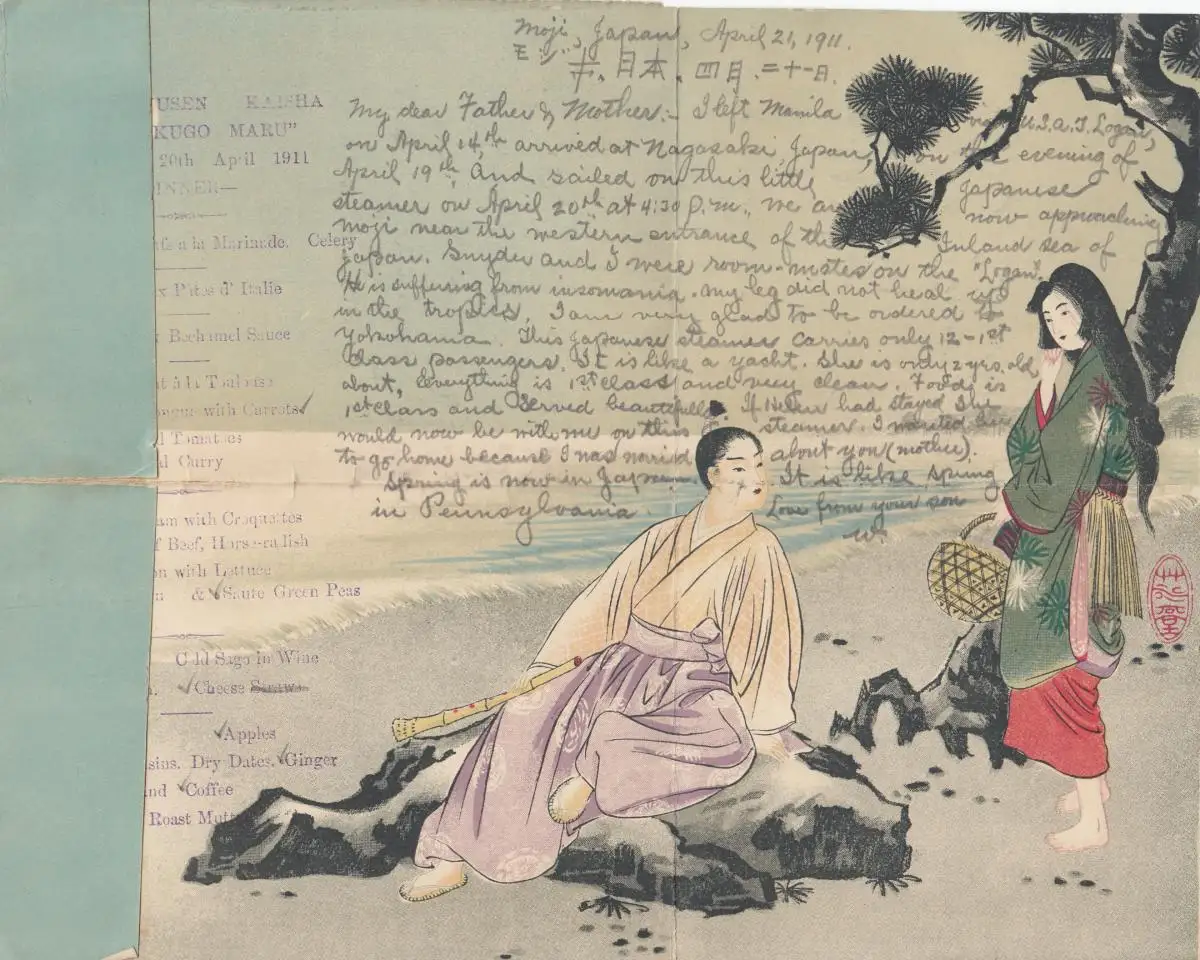 Moji, Japan, April 21, 1911.
モジ 市、日本、四月、二十一日.
My dear Father & Mother:- I left Manila
via U.S.A.T. Logan,
on April 14th, arrived at Nagasaki, Japan, on the evening of
April 19th, and sailed on this little Japanese
steamer on April 20th at 4:30 p.m., We are now approaching
Moji near the western entrance of the Inland sea of
Japan. Snyder and I were room-mates on the "Logan".
He is suffering from insomania. My leg did not heal up
in the tropics, I am very glad to be ordered to
Yokohama. This Japanese steamer carries only 12-1st
Class passengers. It is like a yacht. She is only 2 yrs. old
about, Everything is 1st Class and very clean. Food is
1st Class and served beautifully. If Helen had stayed she
would now be with me on this steamer. I wanted her
to go home because I was worried about you (mother).
Spring is now in Japan. It is like spring
in Pennsylvania. Love from your son
W.
USEN KAISHA
KUGO MARU"
20th April 1911
INNER—
a la Marinade. Celery
Pâtes d' Italie
Bechamel Sauce
with Carrots
Tomatoes
Curry
with Croquettes
Beef, Horse-radish
with Lettuce
& Saute Green Peas
Cold Sago in Wine
Cheese Straws
Apples
sins. Dry Dates. Ginger
nd Coffee
Roast Mutt